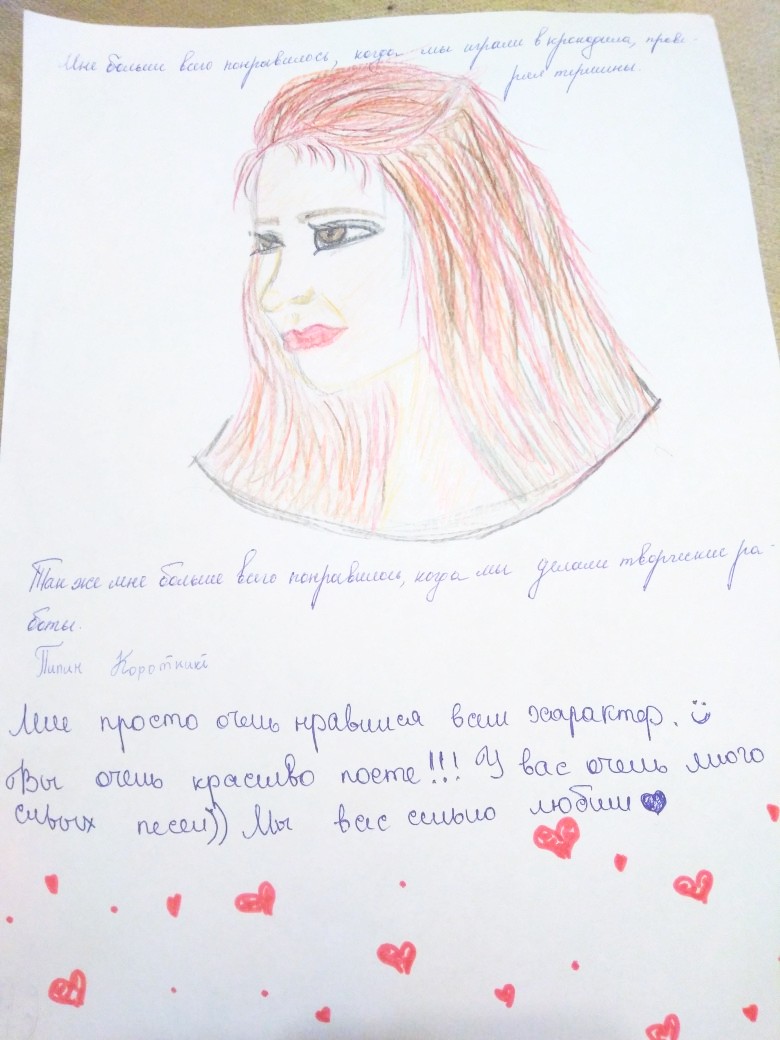 Мне больше всего понравилось, когда мы играли в крокодила, прове-
ряя термины.
Также мне больше всего понравилось, когда мы делали творческие ра-
боты.
Пипин Короткий
Мне просто очень нравится ваш характер. ت
Вы очень красиво поете!!! У вас очень много
своих песен)) Мы вас сильно любим